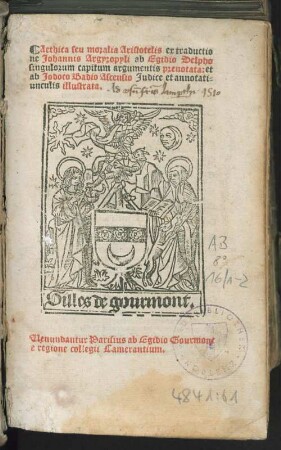 Aethica seu moralia Aristotelis ex traductio
ne Johannis Argyropyli ab Egidio Delpho
singulorum capitum argumentis prenotata: et
ab Jodoco Badio Ascensio Indice et annotati
unculis illustrata.
1510
Gilles de gourmont.
A3
8°
16/1-2
Venundantur Parisius ab Egidio Gourmont
e regione collegii Cameracensium.
4841:61